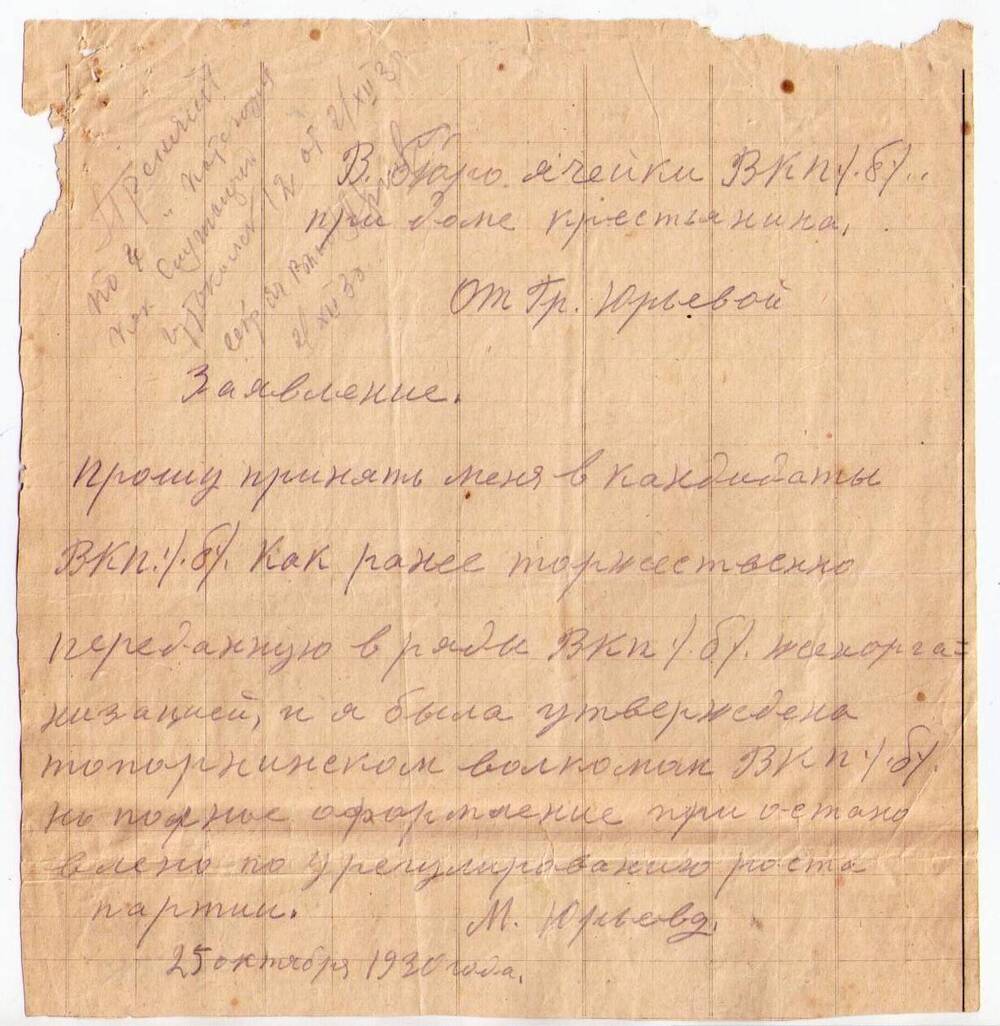 В. бюро ячейки ВКП./.б/..
при доме крестьянина.
От Гр. Юрьевой
Заявление.
Прошу принять меня в кандидаты
ВКП./.б/. Как ранее торжественно
переданную в ряды ВКП/.б/. женорга=
низацией, и я была утверждена
топорнинском волкомом ВКП/.б/.
но полное оформление при остано
влено по урегулированию роста
партии.
М. Юрьева.
25 октября 1930 года.
по 4
12 от 2/XII 30
2/XII 30.